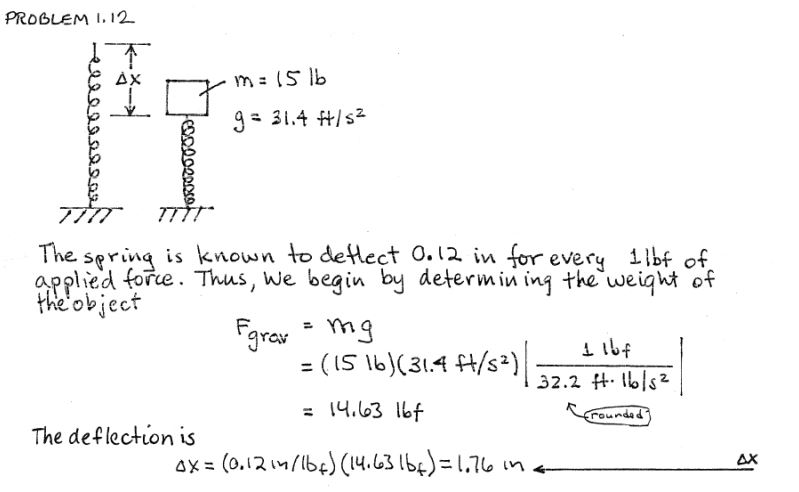 PROBLEM 1.12
Δx
m = 15 lb
g = 31.4 ft/s²
The spring is known to deflect 0.12 in for every 1 lbf of
applied force. Thus, we begin by determining the weight of
the object
Fgrav = mg
= (15 lb)(31.4 ft/s²) | 1 lbf / 32.2 ft·lb/s² |
rounded
= 14.63 lbf
The deflection is
Δx = (0.12 in/lbf)(14.63 lbf) = 1.76 in ← Δx